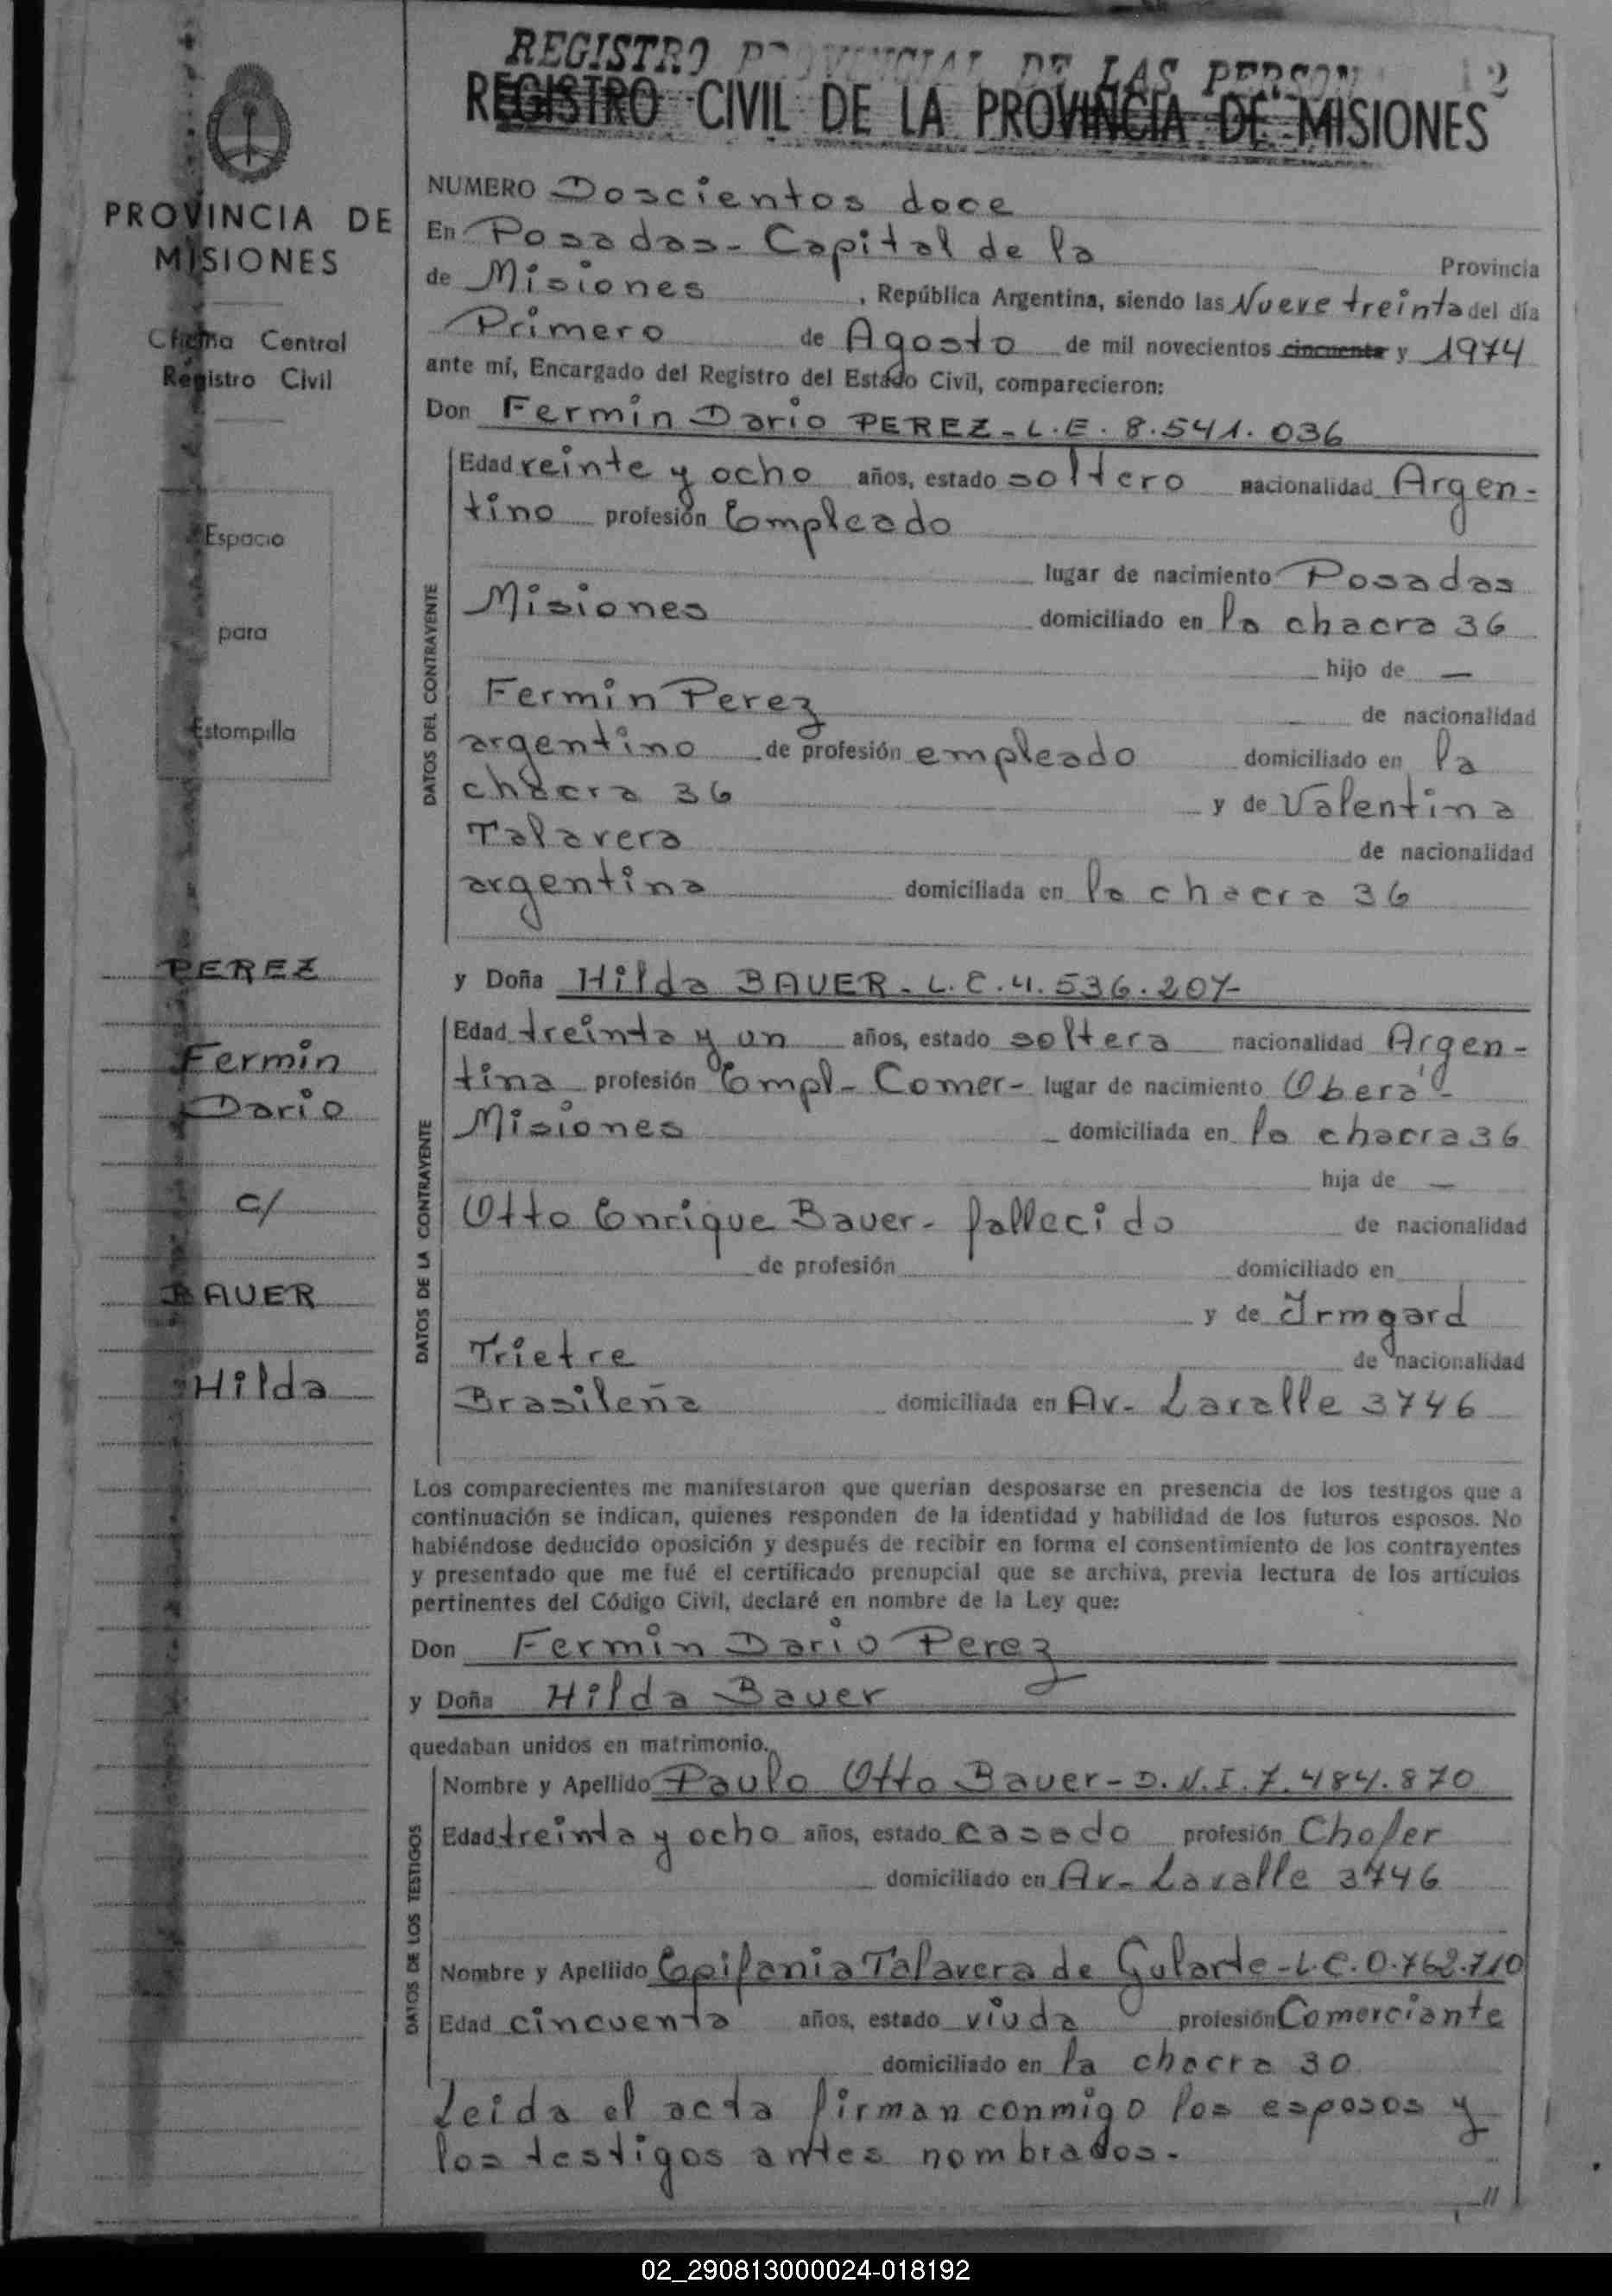 REGISTRO PROVINCIAL DE LAS PERSON
REGISTRO CIVIL DE LA PROVINCIA DE MISIONES
PROVINCIA DE
MISIONES
Oficina Central
Registro Civil
Espacio
para
Estampilla
PEREZ
Fermin
Dario
c/
BAUER
Hilda
NUMERO Doscientos doce
En Posadas - Capital de la Provincia
de Misiones, República Argentina, siendo las Nueve treinta del día
Primero de Agosto de mil novecientos cincuenta y 1974
ante mí, Encargado del Registro del Estado Civil, comparecieron:
Don Fermin Dario PEREZ - L.E. 8.541.036
DATOS DEL CONTRAYENTE
Edad veinte y ocho años, estado soltero nacionalidad Argen-
tino profesión Empleado
lugar de nacimiento Posadas
Misiones domiciliado en la chacra 36
hijo de —
Fermin Perez de nacionalidad
argentino de profesión empleado domiciliado en la
chacra 36 y de Valentina
Talavera de nacionalidad
argentina domiciliada en la chacra 36
y Doña Hilda BAUER - L.C. 4.536.207-
DATOS DE LA CONTRAYENTE
Edad treinta y un años, estado soltera nacionalidad Argen-
tina profesión Empl- Comer- lugar de nacimiento Oberá -
Misiones domiciliada en la chacra 36
hija de —
Otto Enrique Bauer - fallecido de nacionalidad
de profesión domiciliado en
y de Irmgard
Trietre de nacionalidad
Brasileña domiciliada en Av- Lavalle 3746
Los comparecientes me manifestaron que querían desposarse en presencia de los testigos que a
continuación se indican, quienes responden de la identidad y habilidad de los futuros esposos. No
habiéndose deducido oposición y después de recibir en forma el consentimiento de los contrayentes
y presentado que me fué el certificado prenupcial que se archiva, previa lectura de los artículos
pertinentes del Código Civil, declaré en nombre de la Ley que:
Don Fermin Dario Perez
y Doña Hilda Bauer
quedaban unidos en matrimonio.
DATOS DE LOS TESTIGOS
Nombre y Apellido Paulo Otto Bauer - D.N.I. 7.484.870
Edad treinta y ocho años, estado casado profesión Chofer
domiciliado en Av- Lavalle 3746
Nombre y Apellido Epifania Talavera de Gularte - L.C. 0.762.710
Edad cincuenta años, estado viuda profesión Comerciante
domiciliado en la chacra 30
Leida el acta firman conmigo los esposos y
los testigos antes nombrados.-
//
02_290813000024-018192